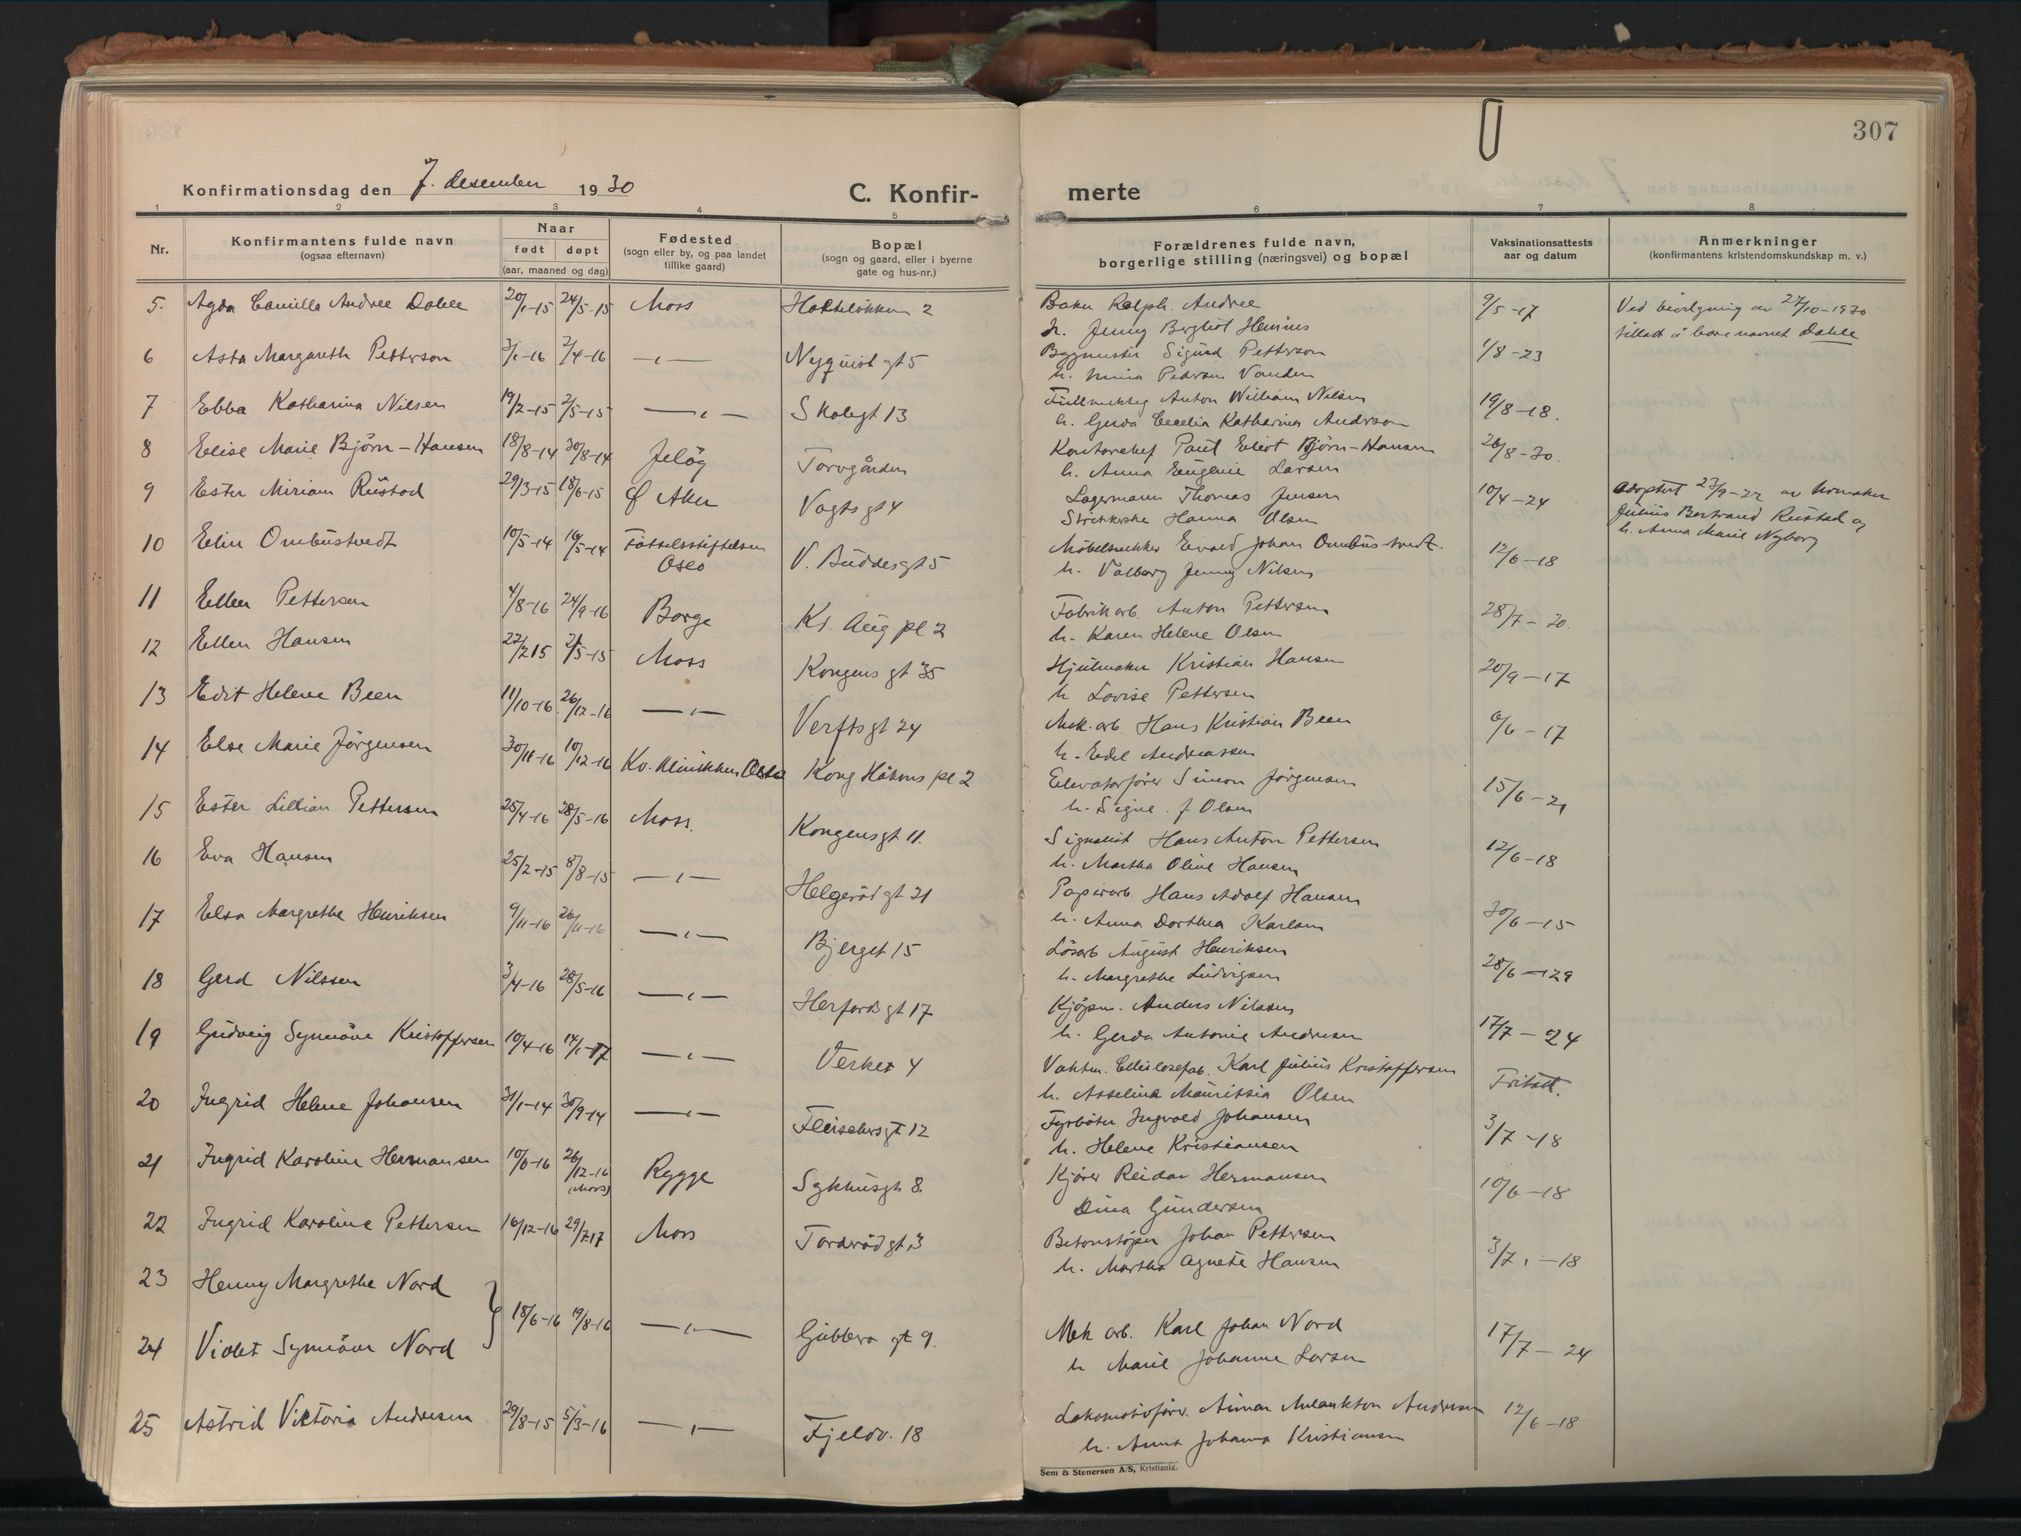 307
Konfirmationsdag den 7. desember 1930
C. Konfir-
merte
1 2 3 4 5 6 7 8
Nr.
Konfirmantens fulde navn
(ogsaa efternavn)
Naar
født døpt
(aar, maaned og dag)
Fødested
(sogn eller by, og paa landet
tillike gaard)
Bopæl
(sogn og gaard, eller i byerne
gate og hus-nr.)
Forældrenes fulde navn,
borgerlige stilling (næringsvei) og bopæl
Vaksinationsattests
aar og datum
Anmerkninger
(konfirmantens kristendomskundskap m. v.)
5. Agda Camilla Andree Dahle 20/1-15 24/5-15 Moss 2
Baker Ralph Andree 9/5-17 Ved bevilgning av 27/10-1930
h. Jenny Bergliot tillatt å bære navnet Dahle
6 Asta Margareth Petterson 3/1-16 2/4-16 —"— Nyquist gt 5
Bygmester Sigurd Petterson 1/8-23
h. Pedersen
7 Ebba Katharina Nilsen 19/2-15 2/5-15 —"— Skolegt 13
Fullmektig Anton William Nilsen 19/8-18.
h. Gerda Cecelia Katharina Anderson
8 Elise Marie Bjørn-Hansen 18/8-14 30/8-14 Jeløy Torvgården
Kontorchef Paul Eliot Bjørn-Hansen 26/8-30.
h. Anna Eugenie Larsen
9 Ester Miriam Rustad 29/3-15 18/6-15 Ø Aker Vogts gt 4
Lagermann Thomas Jensen 10/4-24 adoptert 23/9-22 av
Hanna Olsen Julius Bertrand Rustad og
h. Anna Marie Nyborg
10 Elin Ombustvedt 10/5-14 16/5-14 Fötselsstiftelsen Oslo V. Buddesgt 5
Møbelsnekker Evald Johan Ombustvedt. 12/6-18
h. Valborg Jenny Nilsen
11 Ellen Pettersen 4/8-16 24/9-16 Borge Kr. Aug pl 2
Fabrikarb. Anton Pettersen 28/7-20.
h. Karen Helene Olsen
12 Ellen Hansen 22/2 15 2/5-15 Moss Kongens gt 35
Hjulmaker Kristian Hansen 20/9-17
h Lovise Pettersen
13 Edit Helene Been 11/10-16. 26/12-16 —"— Verftsgt 24
Mek. arb. Hans Kristian Been 6/6-17
h. Edel Andreassen
14 Else Marie Jørgensen 30/11-16 10/12-16 Kv. klinikken Oslo Kong Håkons pl 2
Elevatorfører Simon Jørgensen 15/6-21
h. Signe f. Olsen
15 Ester Lillian Pettersen 25/4-16 28/5-16 Moss. Kongensgt 11.
Signalist Hans Anton Pettersen 12/6-18
h. Martha Oline Hansen
16 Eva Hansen 25/2-15 8/8-15 —"— Helgerød gt 21
Papirarb Hans Adolf Hansen 30/6-15
h. Anna Dorthea Karlsen
17 Elsa Margrethe Henriksen 9/11-16 26/11-16 —"— Bjerget 15
Løsarb August Henriksen 28/6-29
h. Margrethe Ludvigsen
18 Gerd Nilssen 3/4-16 28/5-16 —"— Herfords gt 17
Kjøpm. Anders Nilssen 17/7-24
h. Gerda Antonie Andresen
19 Gudveig Synnöve Kristoffersen 10/4-16 14/1-17 —"— Verket 4
Vaktm. Cellulosefab. Karl Julius Kristoffersen Fritatt.
h. Asseline Mauritsia Olsen
20 Ingrid Helene Johansen 31/1-14 30/9-14 —"— Fleischersgt 12
Fyrbøter Ingvald Johansen 3/7-18
h. Helene Kristiansen
21 Ingrid Karoline Hermansen 10/6-16 26/12-16 (Moss) Rygge Sykhusgt 8.
Kjører Reidar Hermansen 10/6-18
Dina Gundersen
22 Ingrid Karoline Pettersen 16/12-16 29/7 17 Moss Torderöd gt 3
Betonstøper Johan Pettersen 3/7.-18
h. Martha Agnete Hansen
23 Henny Margrethe Nord
18/6-16 19/8-16 —"— Gubbero gt 9.
24 Violet Synnöve Nord
Mek arb. Karl Johan Nord 17/7-24
h Marie Johanne Larsen
25 Astrid Viktoria Andresen 29/8-15 5/3-16 —"— Fjeldv. 18
Lokomotivfører Einar Melankton Andresen 12/6-18
h. Anna Johanna Kristiansen
Sem & Stenersen A/S, Kristiania.